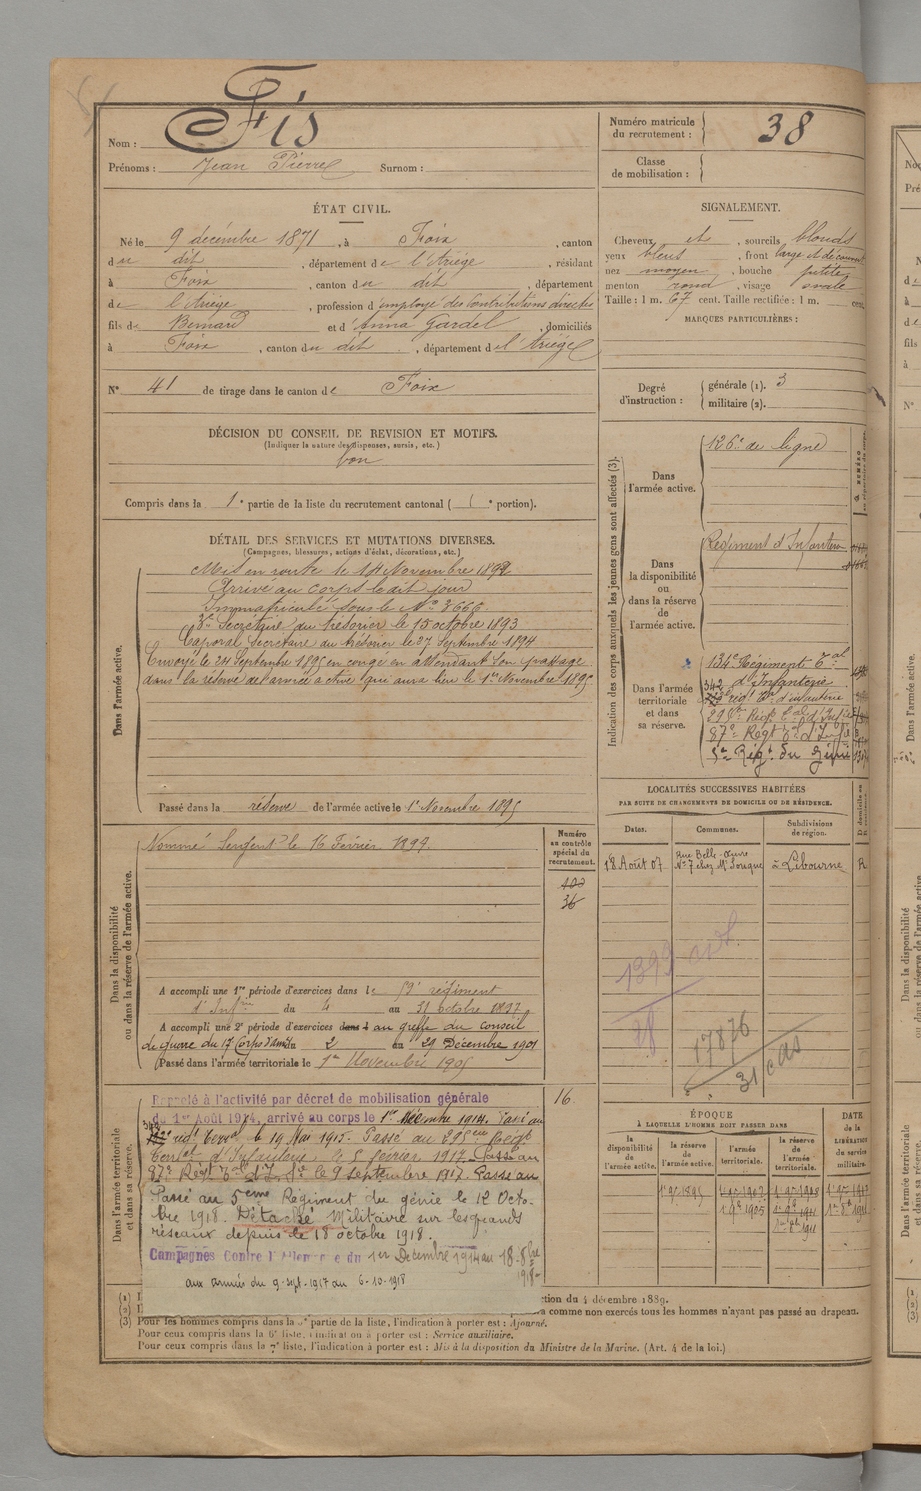 Nom : Fis
Prénoms : Jean Pierre Surnom :
Numéro matricule du recrutement : 38
Classe de mobilisation :
ÉTAT CIVIL.
Né le 9 décembre 1871, à Foix, canton
du dit, département de l'Ariège, résidant
à Foix, canton du dit, département
de l'Ariège, profession d'employé des Contributions directes
fils de Bernard et d'Anna Gardel, domiciliés
à Foix, canton du dit, département de l'Ariège
N° 41 de tirage dans le canton de Foix
SIGNALEMENT.
Cheveux et, sourcils blonds
yeux bleus, front large et découvert
nez moyen, bouche petite
menton rond, visage ovale
Taille : 1 m. 67 cent. Taille rectifiée : 1 m. cent.
MARQUES PARTICULIÈRES :
Degré d'instruction : générale (1). 3
militaire (2).
DÉCISION DU CONSEIL DE REVISION ET MOTIFS.
(Indiquer la nature des dispenses, sursis, etc.)
bon
Compris dans la 1e partie de la liste du recrutement cantonal ( e portion).
DÉTAIL DES SERVICES ET MUTATIONS DIVERSES.
(Campagnes, blessures, actions d'éclat, décorations, etc.)
Dans l'armée active.
Mis en route le 14 Novembre 1892
Arrivé au corps le dit jour
Immatriculé sous le N° 3666
Secrétaire du trésorier le 15 octobre 1893
Caporal Secrétaire du trésorier le 27 Septembre 1894
Envoyé le 24 Septembre 1895 en congé en attendant son passage
dans la réserve de l'armée active qui aura lieu le 1er Novembre 1895
Passé dans la réserve de l'armée active le 1er Novembre 1895
Indication des corps auxquels les jeunes gens sont affectés (3).
Dans l'armée active.
126e de ligne
Dans la disponibilité ou dans la réserve de l'armée active.
Régiment d'Infanterie
Dans l'armée territoriale et dans sa réserve.
134e Régiment Tal
d'Infanterie
342
87e Régt Tal d'Infie
5e Régt du Génie
LOCALITÉS SUCCESSIVES HABITÉES
PAR SUITE DE CHANGEMENTS DE DOMICILE OU DE RÉSIDENCE.
Dates. Communes. Subdivisions de région.
18 Août 07 Rue Belle-Œuvre N° 7 chez à Libourne R
1899
17876
Dans la disponibilité ou dans la réserve de l'armée active.
Nommé Sergent le 16 Février 1897.
Numéro au contrôle spécial du recrutement.
36
A accompli une 1re période d'exercices dans le 59e régiment
d'Infrie du 4 au 31 octobre 1897
A accompli une 2e période d'exercices dans l au greffe du conseil
de guerre du 17e Corps d'armée du 2 au 29 Décembre 1901
Passé dans l'armée territoriale le 1er Novembre 1905
Dans l'armée territoriale et dans sa réserve.
Rappelé à l'activité par décret de mobilisation générale
du 1er Août 1914, arrivé au corps le 1er Décembre 1914. Passé au
342 régt Terral le 19 Mai 1915. Passé au
Territ d'Infanterie, le 5 février 1917. Passé au
87e Régt Tal d'Ie le 9 septembre 1917. Passé au
Passé au 5ème Régiment du génie le 12 Octo-
bre 1918. Détaché Militaire sur les grands
réseaux depuis le 18 octobre 1918.
Campagnes Contre l'Allemagne du 1er Décembre 1914 au 18-8bre
1918-
aux armées du 9-sept-1917 au 6-10-1918
16.
ÉPOQUE
À LAQUELLE L'HOMME DOIT PASSER DANS
la disponibilité de l'armée active. la réserve de l'armée active. l'armée territoriale. la réserve de l'armée territoriale.
DATE de la LIBÉRATION du service militaire.
1er 9bre 1895
1er 9bre 1905
(1)
(2)
ction du 4 décembre 1889.
comme non exercés tous les hommes n'ayant pas passé au drapeau.
(3) Pour les hommes compris dans la 5e partie de la liste, l'indication à porter est : Ajourné.
Pour ceux compris dans la 6e liste, l'indication à porter est : Service auxiliaire.
Pour ceux compris dans la 7e liste, l'indication à porter est : Mis à la disposition du Ministre de la Marine. (Art. 4 de la loi.)